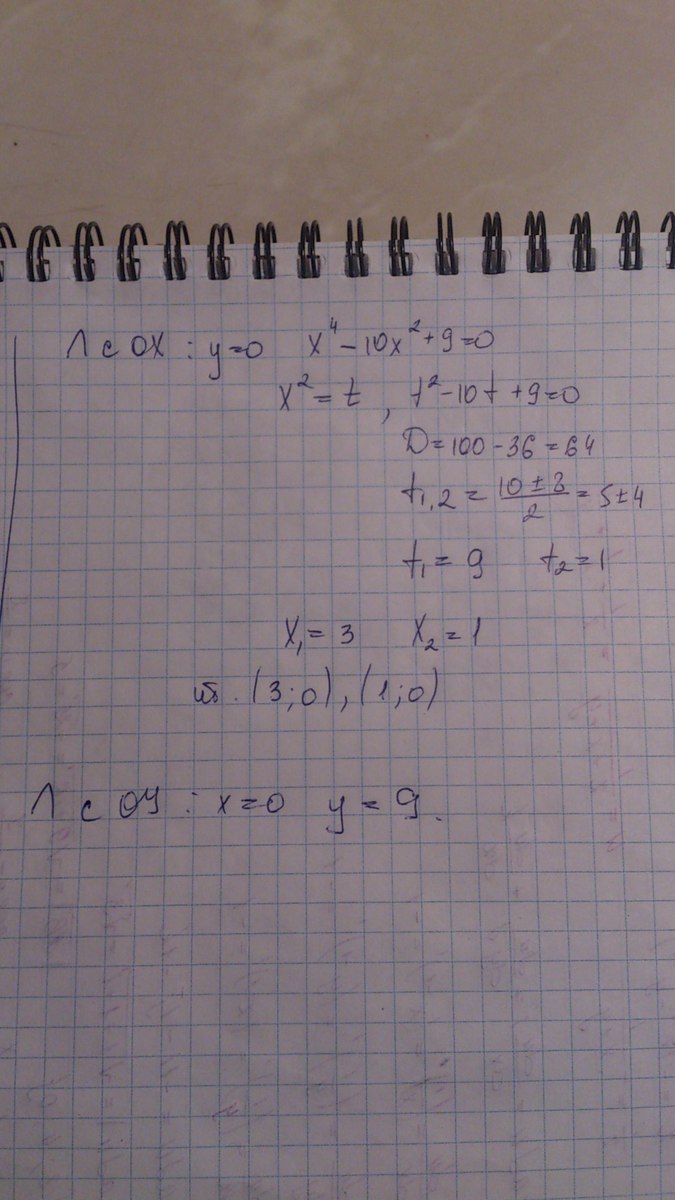 ∩ с OX : y=0 x⁴-10x²+9=0
x²=t, t²-10t+9=0
D=100-36=64
t₁,₂ = (10±8)/2 = 5±4
t₁=9 t₂=1
x₁=3 x₂=1
(3;0), (1;0)
∩ с OY : x=0 y=9.